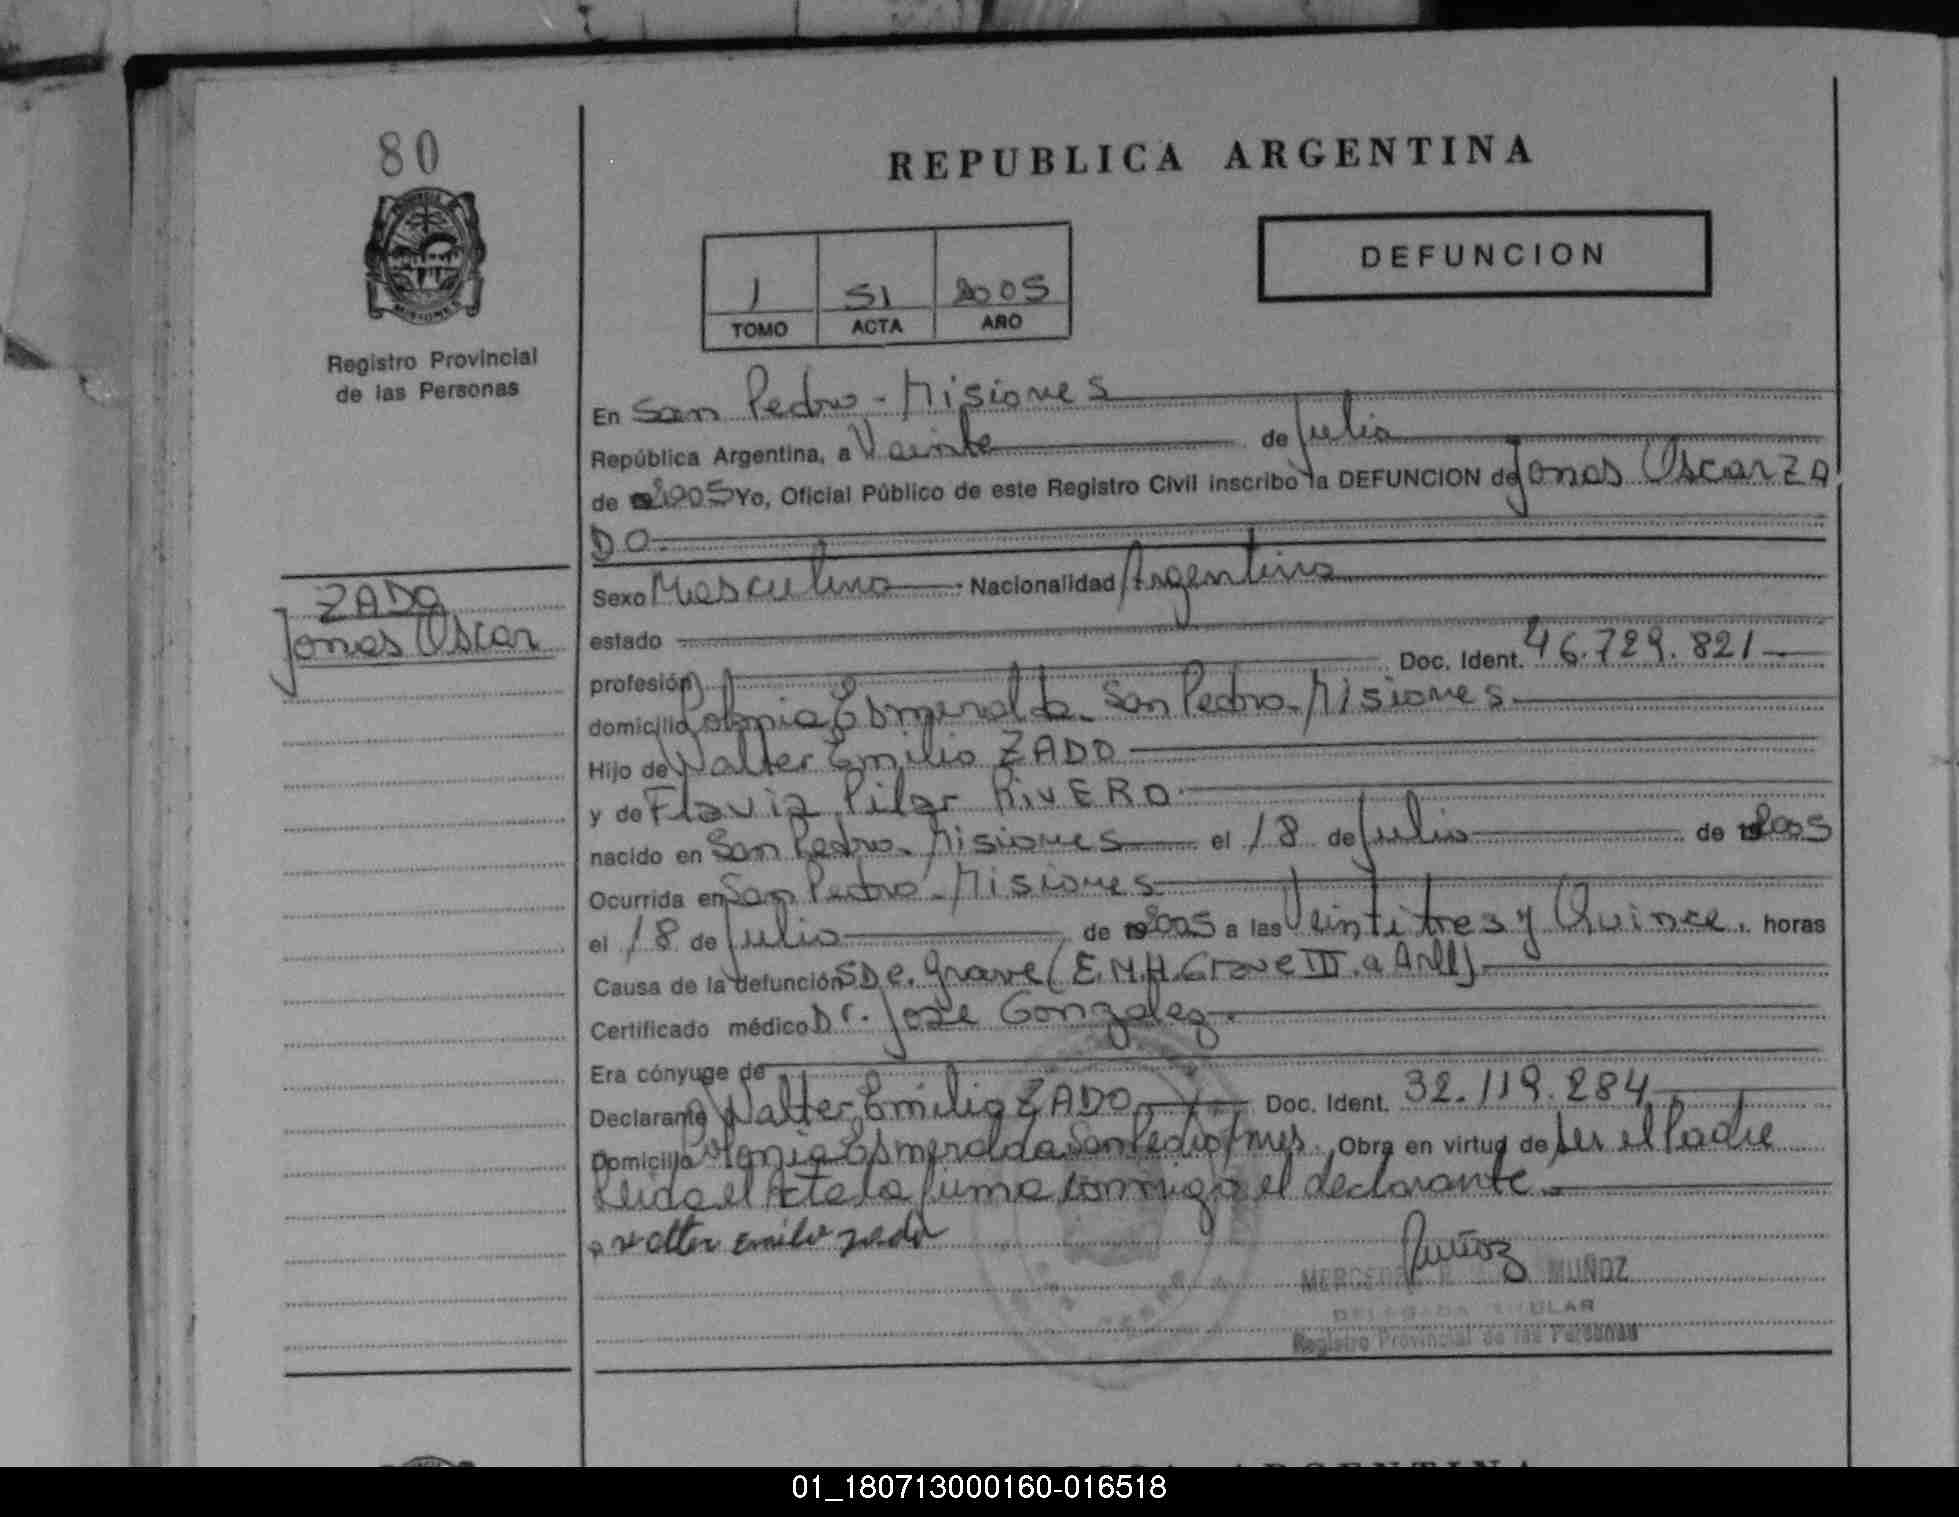 80
REPUBLICA ARGENTINA
DEFUNCION
1 51 2005
TOMO ACTA AÑO
Registro Provincial
de las Personas
En San Pedro - Misiones
República Argentina, a Veinte de Julio
de 2005 Yo, Oficial Público de este Registro Civil inscribo la DEFUNCION de Jonas Oscar ZA
DO.
ZADO
Jonas Oscar
Sexo Masculino Nacionalidad Argentina
estado
profesión Doc. Ident. 46.729.821
domicilio Colonia Esmeralda - San Pedro - Misiones
Hijo de Walter Emilio ZADO
y de Flavia Pilar RIVERO
nacido en San Pedro - Misiones el 18 de Julio de 2005
Ocurrida en San Pedro - Misiones
el 18 de Julio de 2005 a las Veintitres y Quince. horas
Causa de la defunción SDe. grave (E.M.H. Grave III. a
Certificado médico Dr. Jose Gonzalez.
Era cónyuge de
Declarante Walter Emilio ZADO Doc. Ident. 32.119.284
Domicilio Colonia Esmeralda San Pedro Mnes. Obra en virtud de ser el Padre
Leida el Acta la firma conmigo el declarante.
walter Emilio zado
Muñoz
MUÑOZ
DELEGADA TITULAR
Registro Provincial de las Personas
01_180713000160-016518